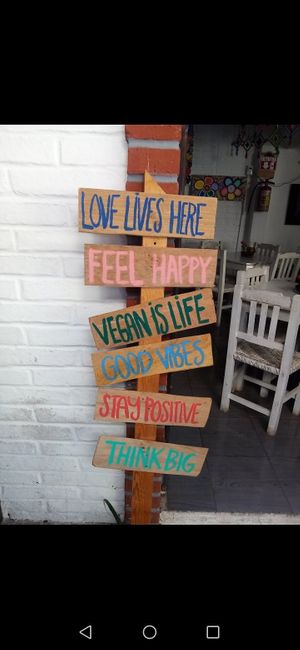 LOVE LIVES HERE
FEEL HAPPY
VEGAN IS LIFE
GOOD VIBES
STAY POSITIVE
THINK BIG